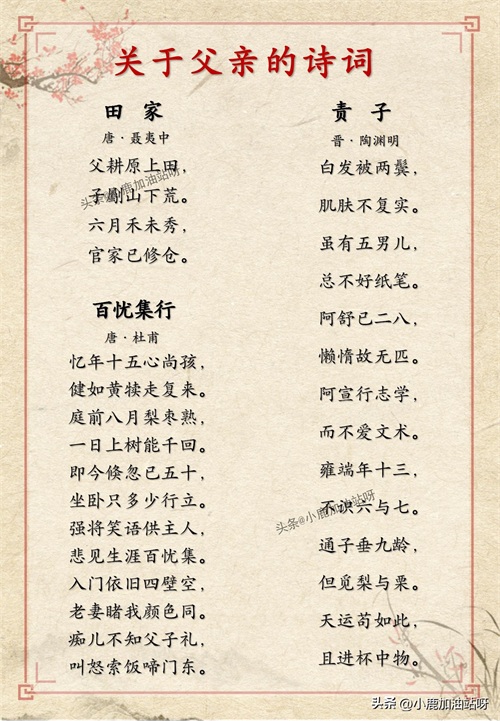 关于父亲的诗词
田 家
唐·聂夷中
父耕原上田，
子劚山下荒。
六月禾未秀，
官家已修仓。
头条@小鹿加油站呀
百忧集行
唐·杜甫
忆年十五心尚孩，
健如黄犊走复来。
庭前八月梨枣熟，
一日上树能千回。
即今倏忽已五十，
坐卧只多少行立。
强将笑语供主人，
悲见生涯百忧集。
入门依旧四壁空，
老妻睹我颜色同。
痴儿不知父子礼，
叫怒索饭啼门东。
责 子
晋·陶渊明
白发被两鬓，
肌肤不复实。
虽有五男儿，
总不好纸笔。
阿舒已二八，
懒惰故无匹。
阿宣行志学，
而不爱文术。
雍端年十三，
不识六与七。
头条@小鹿加油站呀
通子垂九龄，
但觅梨与栗。
天运苟如此，
且进杯中物。
头条 @小鹿加油站呀